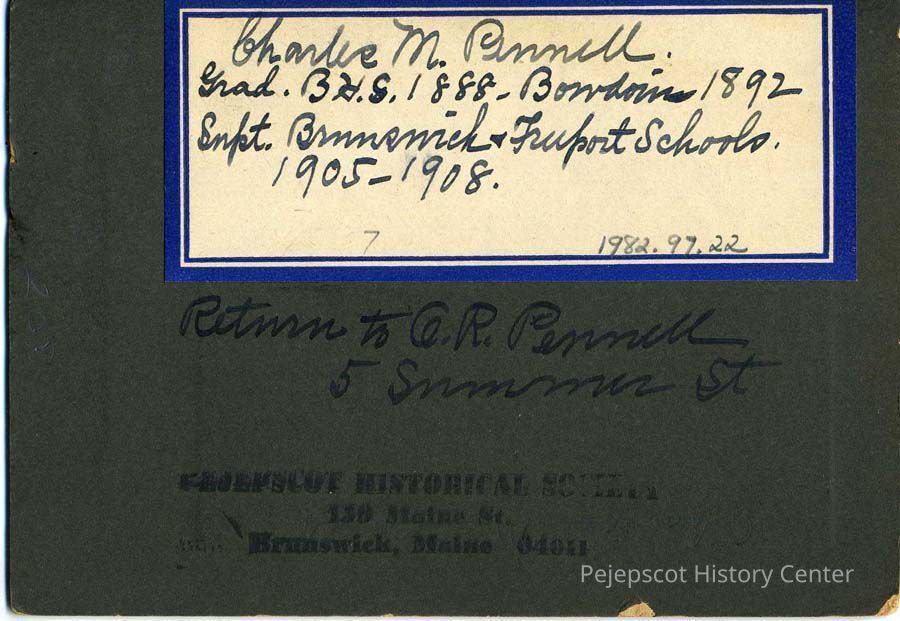 Charles M. Pennell.
Grad. B.H.S. 1888 - Bowdoin 1892
Supt. Brunswick & Freeport Schools.
1905 - 1908.
7
1982.97.22
Return to C. R. Pennell
5 Summer St
PEJEPSCOT HISTORICAL SOCIETY
159 Maine St.
Brunswick, Maine 04011
Pejepscot History Center